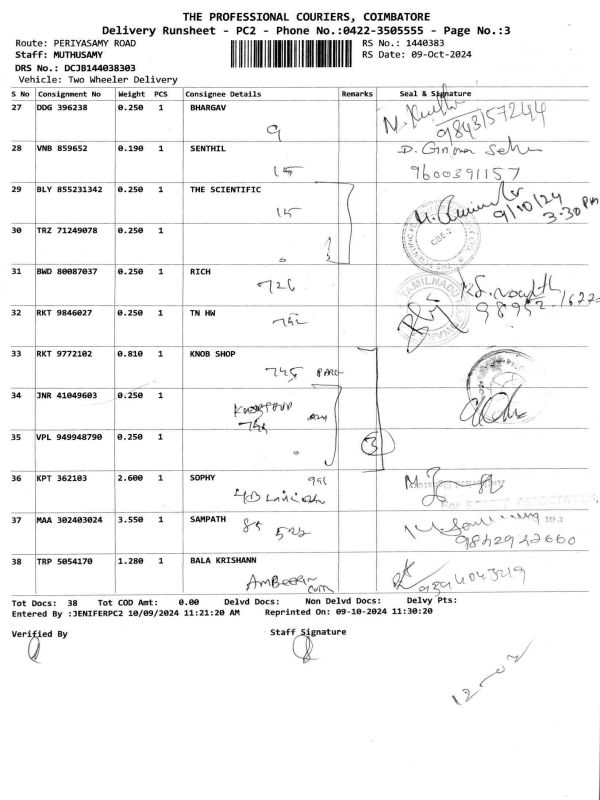 THE PROFESSIONAL COURIERS, COIMBATORE
Delivery Runsheet - PC2 - Phone No.:0422-3505555 - Page No.:3
Route: PERIYASAMY ROAD RS No.: 1440383
Staff: MUTHUSAMY RS Date: 09-Oct-2024
DRS No.: DCJB144038303
Vehicle: Two Wheeler Delivery
S No Consignment No Weight PCS Consignee Details Remarks Seal & Signature
27 DDG 396238 0.250 1 BHARGAV
9 9843157244
28 VNB 859652 0.190 1 SENTHIL
15 9600391157
29 BLY 855231342 0.250 1 THE SCIENTIFIC
15 9/10/24
3.30 PM
30 TRZ 71249078 0.250 1
31 BWD 80087037 0.250 1 RICH
726
32 RKT 9846027 0.250 1 TN HW
33 RKT 9772102 0.810 1 KNOB SHOP
745
34 JNR 41049603 0.250 1
35 VPL 949948790 0.250 1
3
36 KPT 362103 2.600 1 SOPHY 991
37 MAA 302403024 3.550 1 SAMPATH
522 9842942660
38 TRP 5054170 1.280 1 BALA KRISHANN
Tot Docs: 38 Tot COD Amt: 0.00 Delvd Docs: Non Delvd Docs: Delvy Pts:
Entered By :JENIFERPC2 10/09/2024 11:21:20 AM Reprinted On: 09-10-2024 11:30:20
Verified By Staff Signature